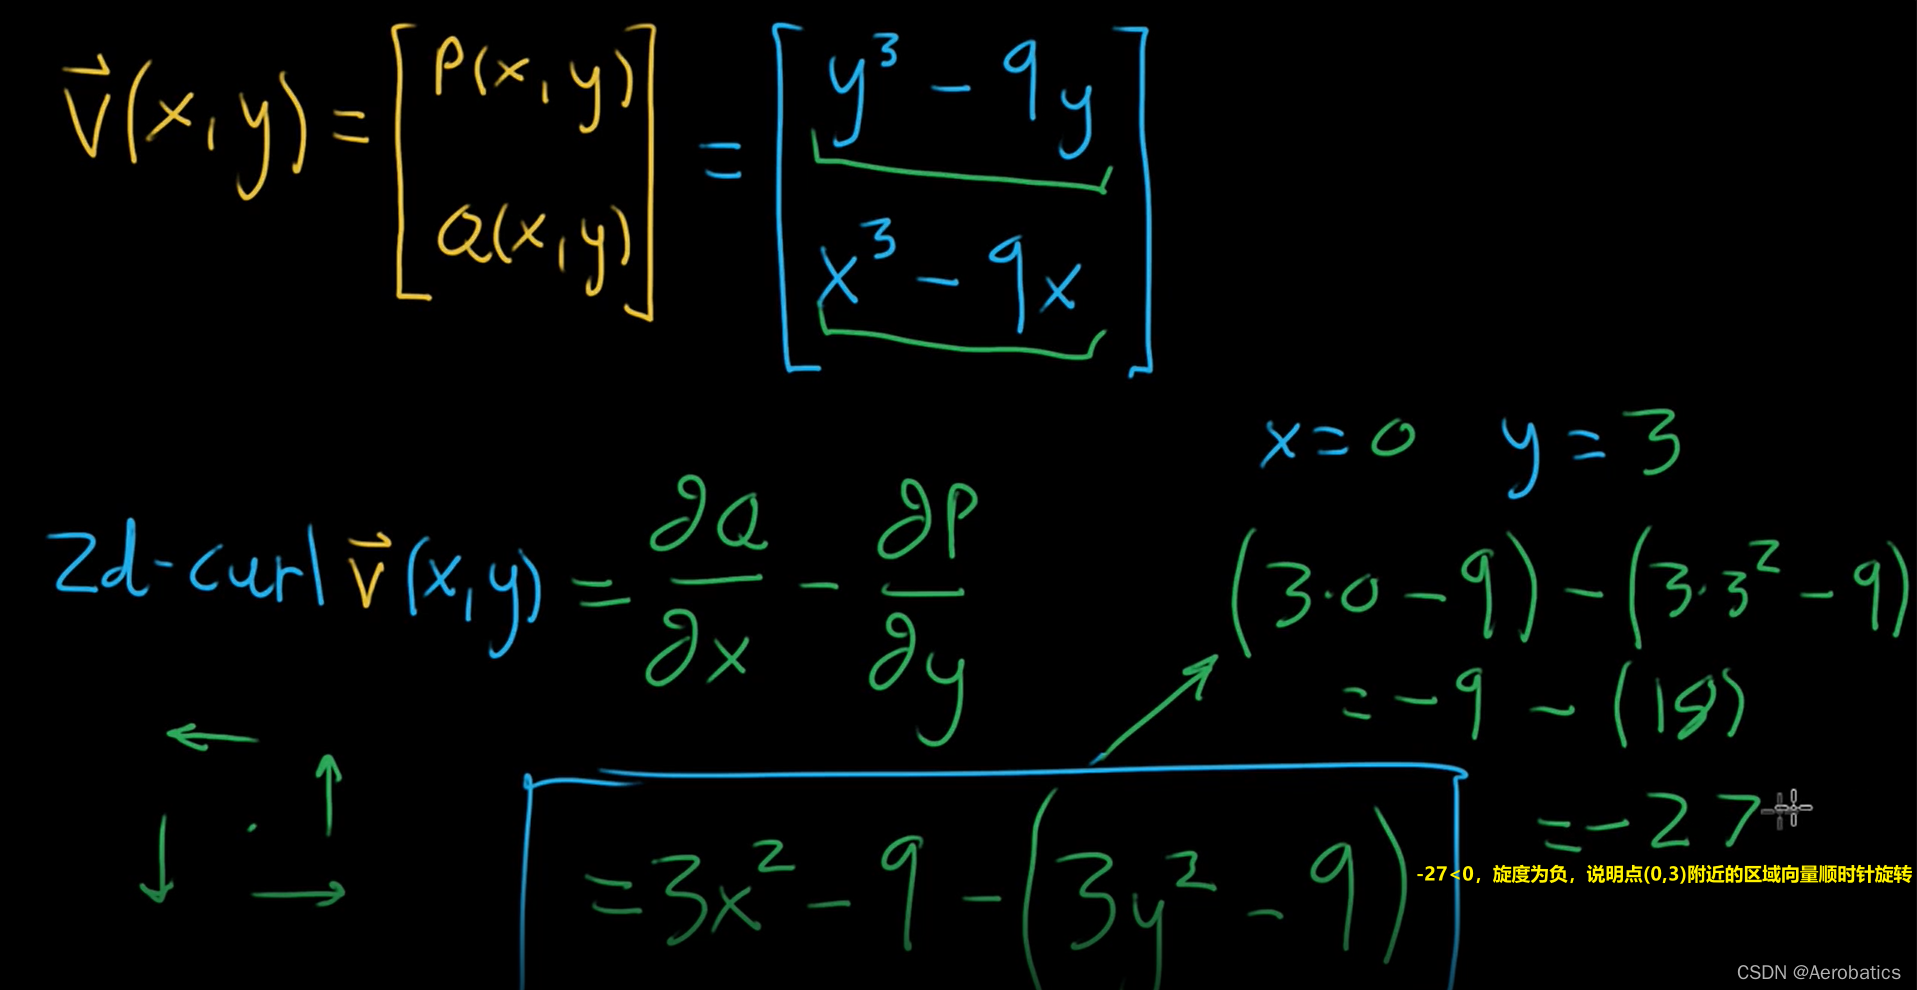 v⃗(x,y) = [P(x,y) Q(x,y)] = [y³ - 9y x³ - 9x]
x=0 y=3
2d-curl v⃗(x,y) = ∂Q/∂x - ∂P/∂y
(3·0-9) - (3·3²-9)
= -9 - (18)
= -27
= 3x² - 9 - (3y² - 9)
-27<0，旋度为负，说明点(0,3)附近的区域向量顺时针旋转
CSDN @Aerobatics